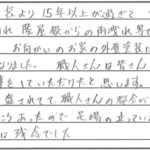 長より15年以上が過ぎて
れ 陸屋根からの雨漏れ等で
お向かいのお家の外壁塗装に
なりました。職人さんは皆さん
をしていただけたと思います。
盛されてて職人さんの都合が
ころあったので 足場の立ってい
は残念でした